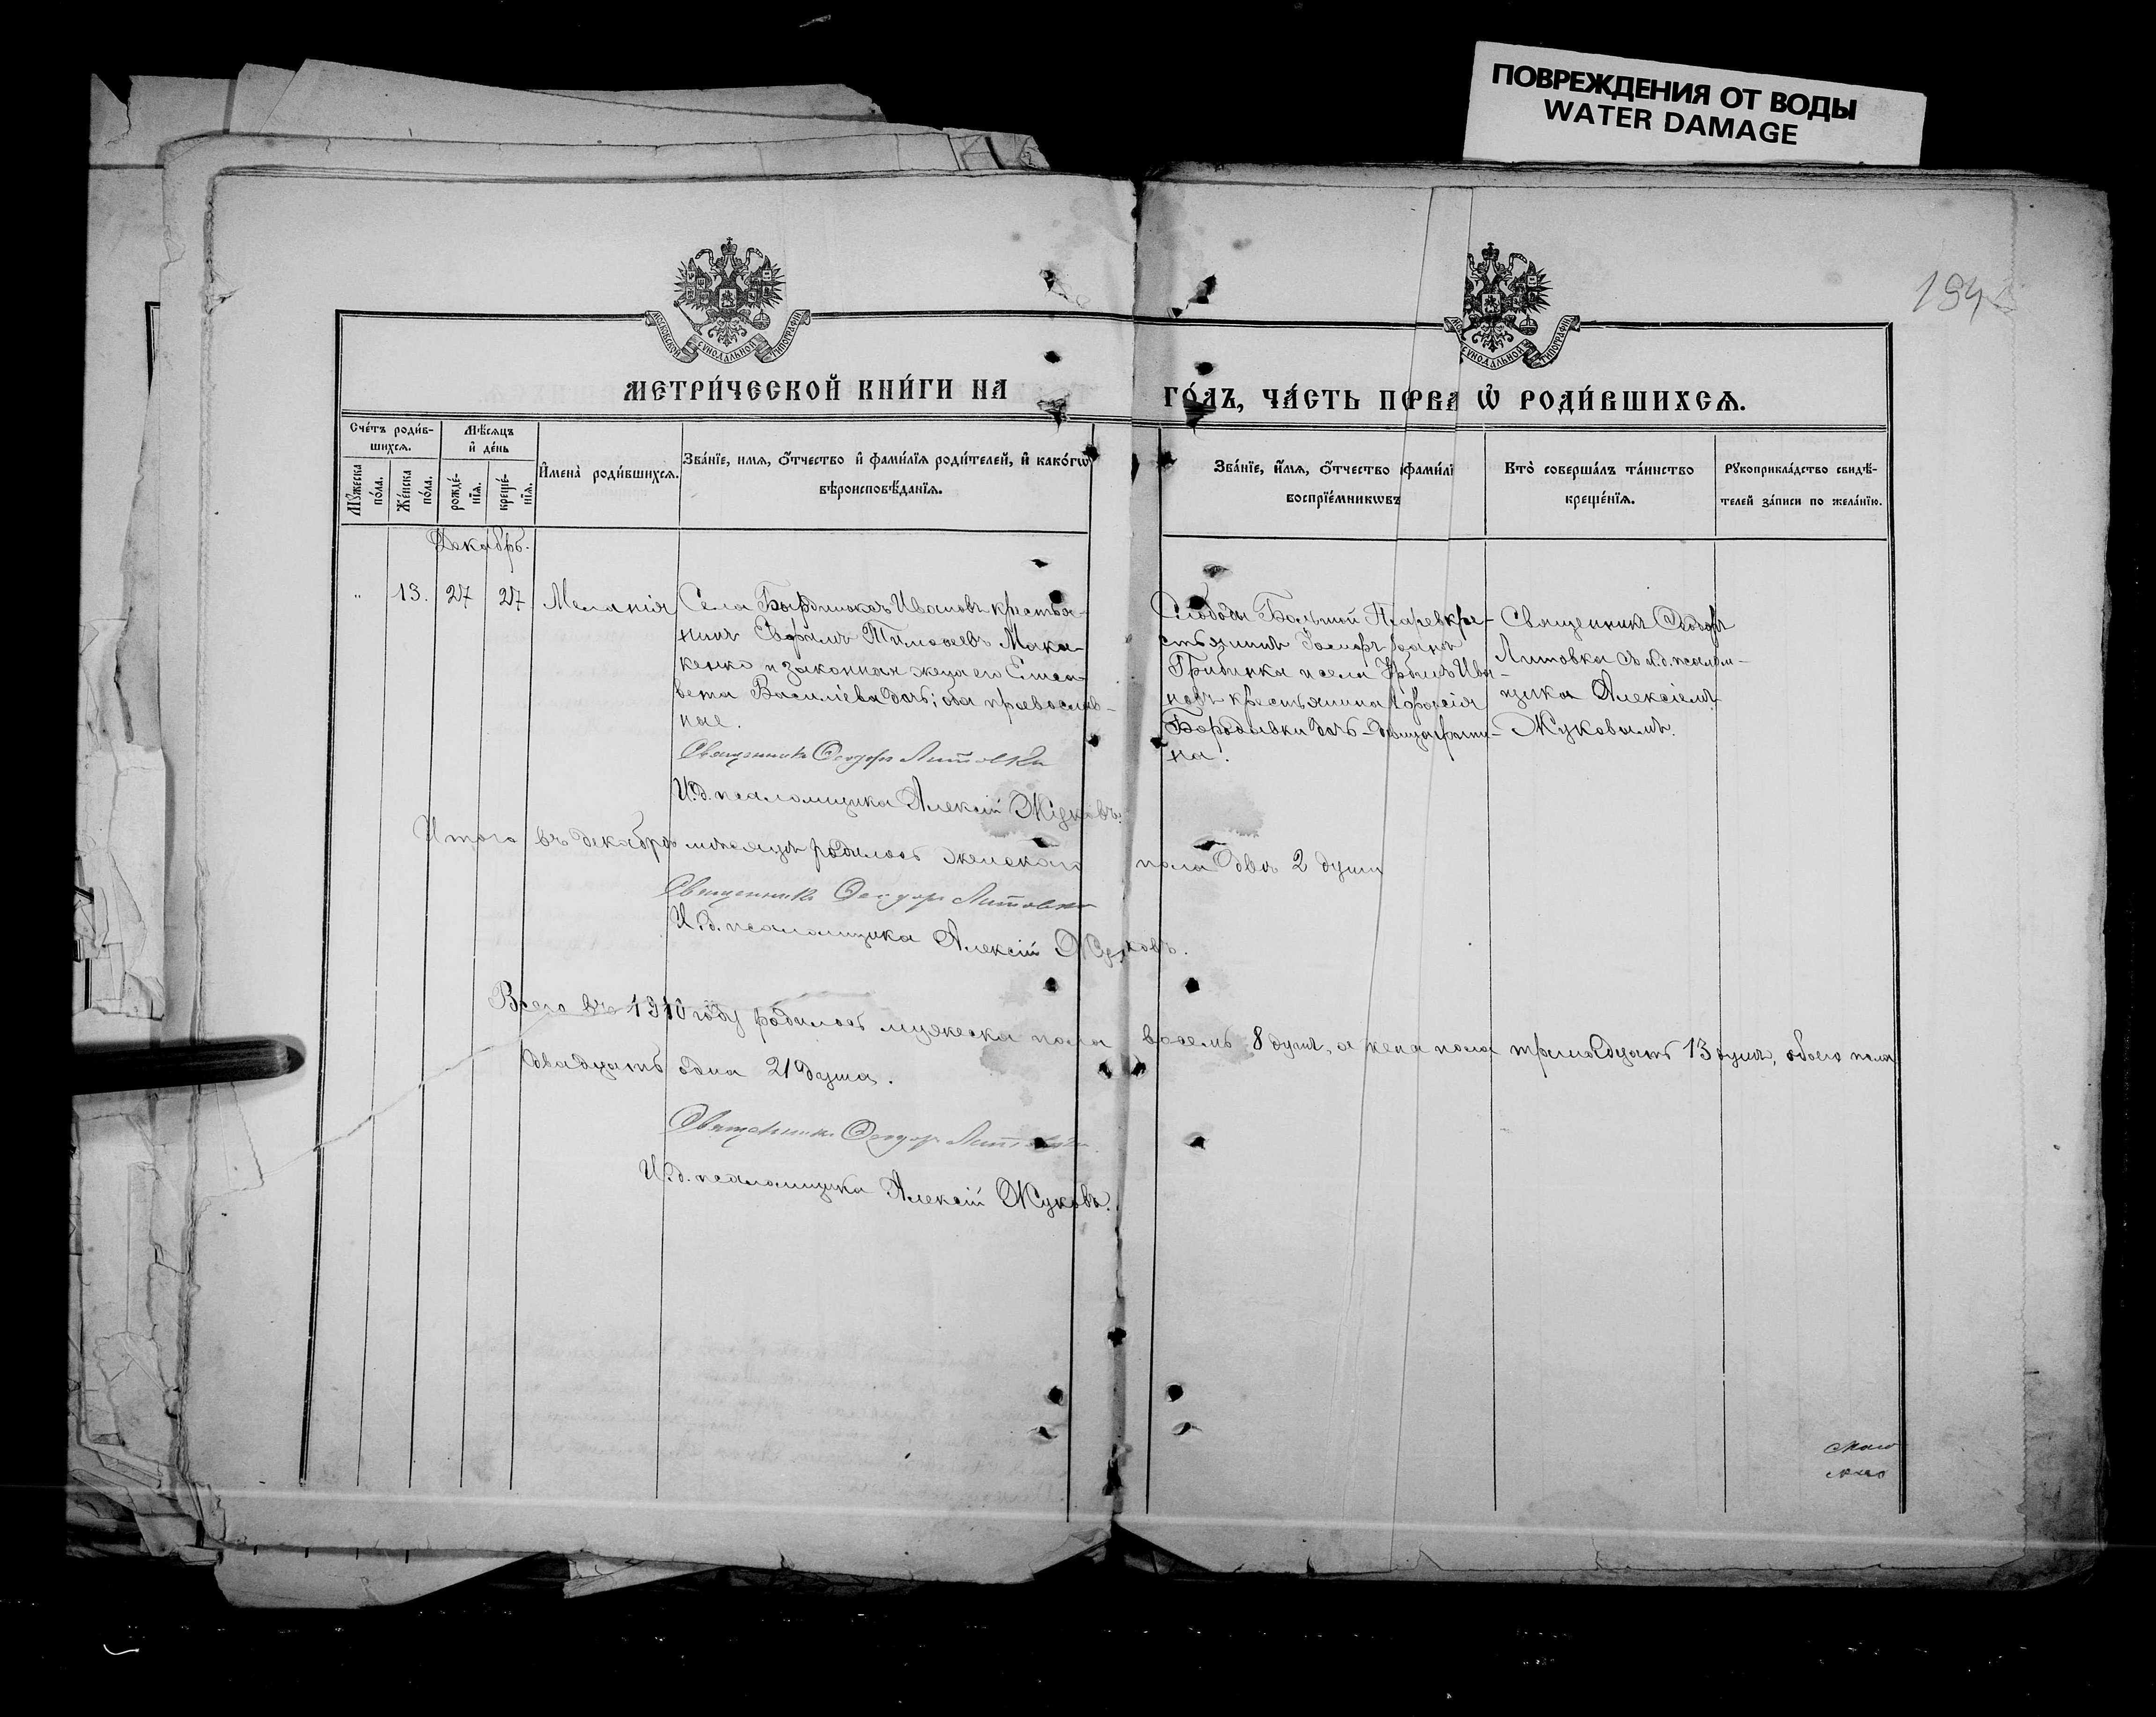 ПОВРЕЖДЕНИЯ ОТ ВОДЫ
WATER DAMAGE
194
МОСКОВСКОЙ СѴНОДАЛЬНОЙ ТИПОГРАФІИ
СѴНОДАЛЬНОЙ ТИПОГРАФІИ
МЕТРИ́ЧЕСКОЙ КНИ́ГИ НА ГО́ДЪ, ЧА́СТЬ ПЕРВА Ѡ҆ РОДИ́ВШИХСѦ.
Сче́тъ роди́в-
шихсѧ.
Мѹ́жеска по́ла.
Же́нска по́ла.
Мѣ́сѧцъ
и҆ де́нь
рожде́-нїѧ.
креще́-нїѧ.
И҆мена̀ роди́вшихсѧ.
Зва́нїе, имѧ, о҆́тчество и҆ фами́лїѧ роди́телей, и҆ како́гѡ
вѣроисповѣ́данїѧ.
Зва́нїе, и҆́мѧ, о҆́тчество фами́лї
воспрїе́мникѡвъ
Кто̀ соверша́лъ та́инство
креще́нїѧ.
Рꙋкоприкла́дство свидѣ́-
телей за́писи по жела́нїю.
Декабрь.
" 13. 27 27 Меланія
Села Ивановъ крестья-
нинъ Евфимъ Тимоѳеевъ Мака-
ренко и законная жена его Елиса-
вета Василіева дочь; оба православ-
ные.
Священникъ Ѳеодоръ Литовка
И.д. псаломщика Алексій Жуковъ.
Слободы Большой кре-
стьянинъ
Грибинка и села Ива-
новъ крестьянина
Бородавки дочь - девица
на.
Священникъ Ѳеодоръ
Литовка съ и.д. псалом-
щика Алексіемъ
Жуковымъ.
Итого въ декабрѣ мѣсяцѣ родилось женскаго пола двѣ 2 души
Священникъ Ѳеодоръ Литовка
И.д. псаломщика Алексій Жуковъ.
Всего въ 1910 году родилось мужеска пола восемь 8 душъ, а жена пола тринадцать 13 душъ, обоего пола
двадцать одна 21 душа.
Священникъ Ѳеодоръ Литовка
И.д. псаломщика Алексій Жуковъ.